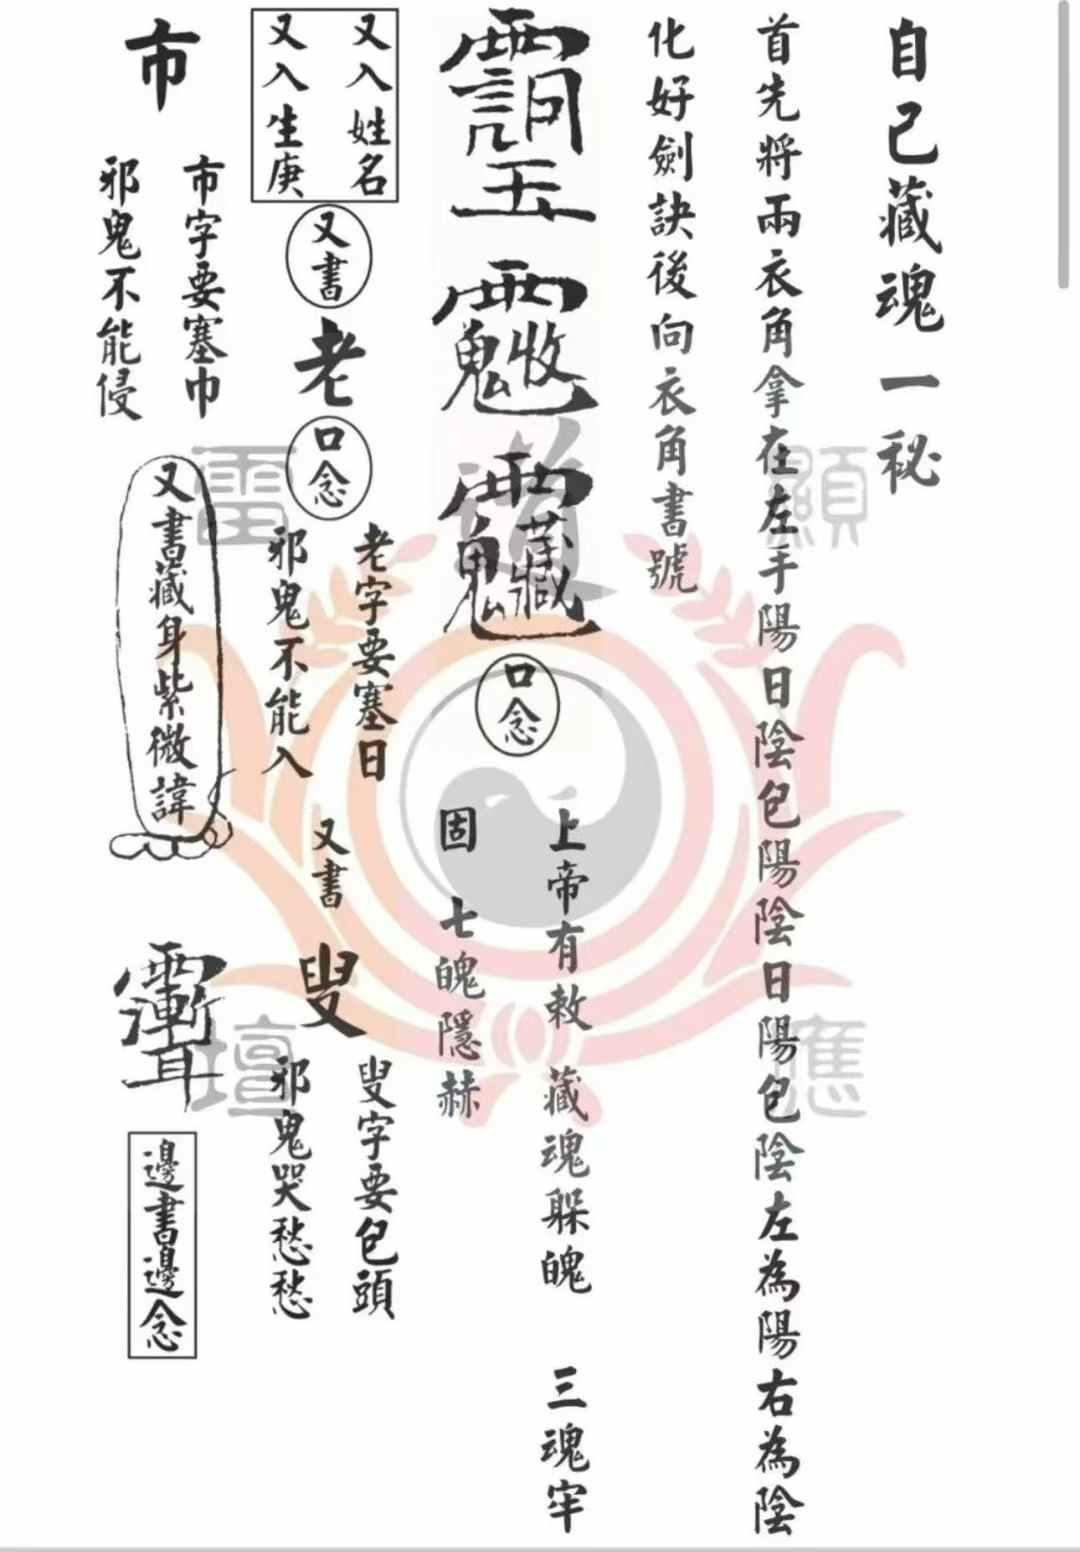 自己藏魂一秘
首先將兩衣角拿在左手陽日陰包陽陰日陽包陰左為陽右為陰
化好劍訣後向衣角書號
口念
上帝有敕 藏魂躲魄 三魂牢
固 七魄隱赫
又入姓名
又入生庚
又書
老
口念
老字要塞日
邪鬼不能入
又書
叟
叟字要包頭
邪鬼哭愁愁
市
市字要塞巾
邪鬼不能侵
又書藏身紫微諱
邊書邊念
顯應
道
雷壇